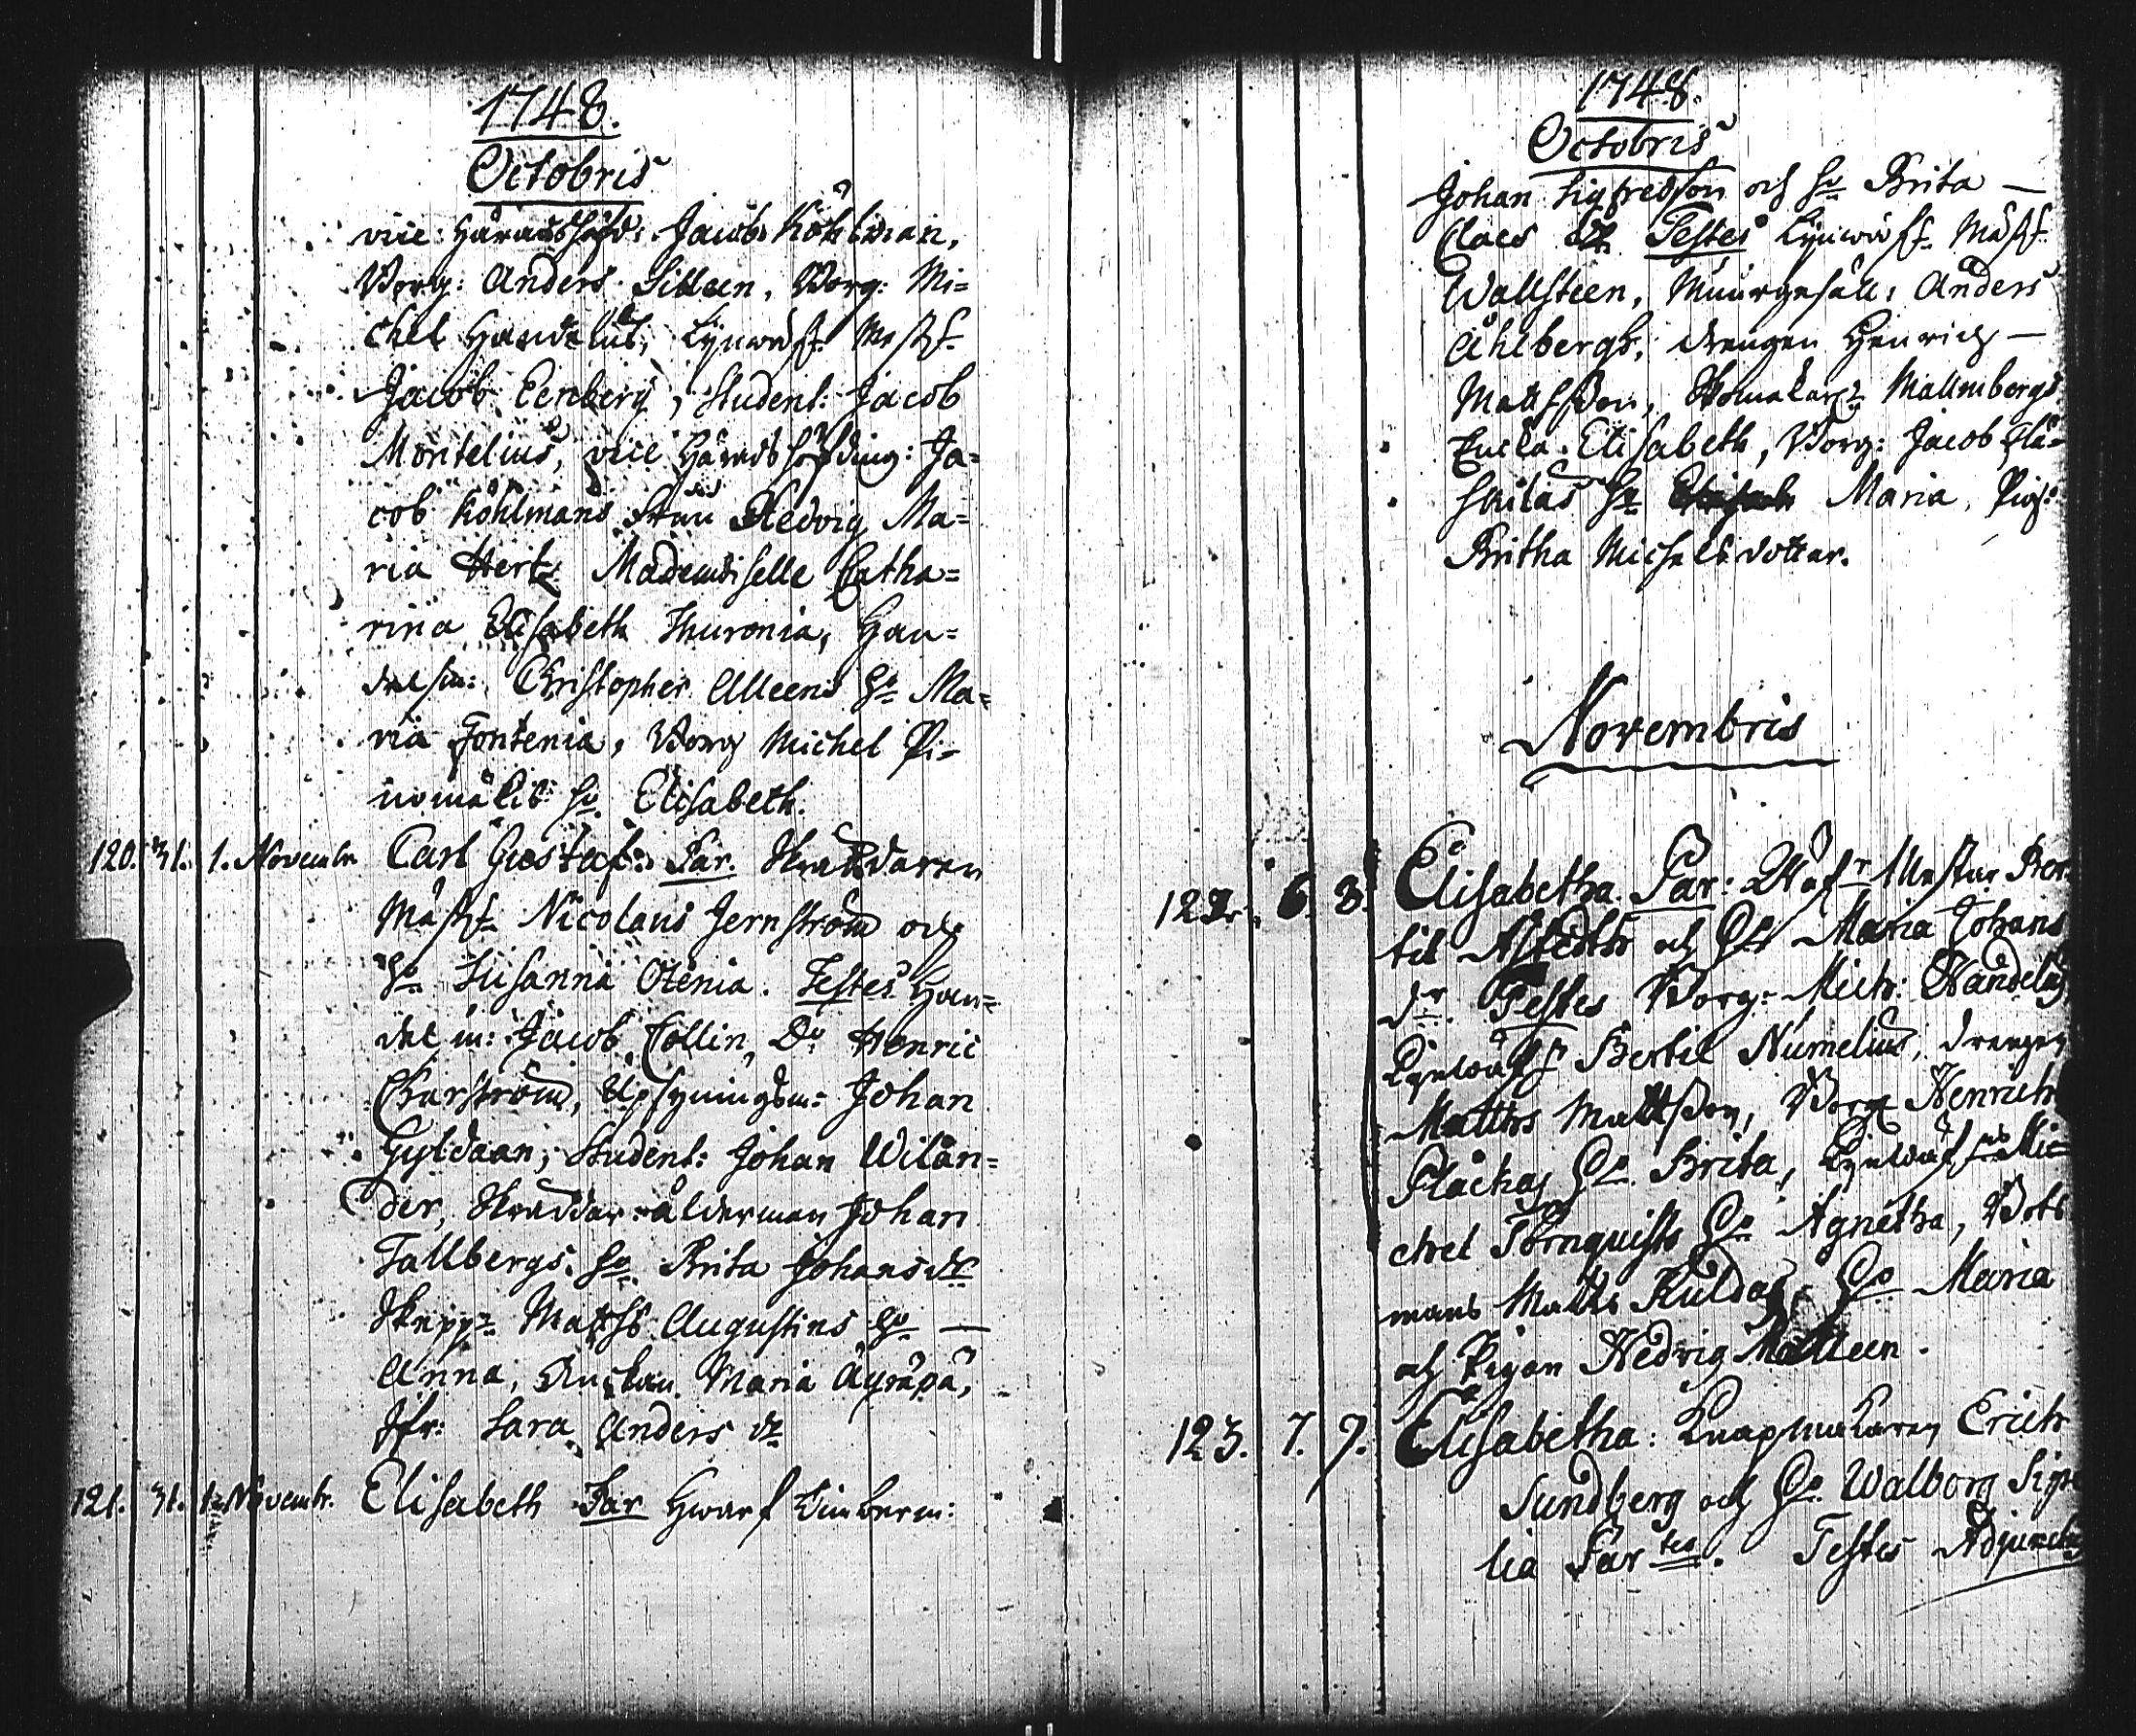 1748.
Octobris
vice Häradshöfd: Jacob Köhlman,
Borg: Anders Sileen, Borg: Mi=
chel Handelus, Lijnwäf. Mästf.
Jacob Eenberg, Student: Jacob
Montelius, vice Häradshöfding: Ja=
cob Köhlmans Fru Hedvig Ma=
ria Hertz Mademoiselle Catha=
rina Elisabeth Thuronia, Han=
delsm: Christopher Alleens Ho Ma=
ria Fontenia, Borg Michel Pi=
nomäkis Ho Elisabeth.
120. 31. 1. Novembr. Carl Gustaf: Par. Skräddaren
Mästf. Nicolaus Jernström och
Ho Susanna Otenia. Testes Han=
del m: Jacob Collin, Do Henric
Charström, Upsyningsm: Johan
Gyldaan, Student: Johan Wilän=
der, Skräddar-ålderman Johan
Tallbergs Ho Brita Johans dr
Skepp. Matths Augustins Ho —
Anna, Änckan Maria Äyräpä,
Jfr: Sara Anders dr
121. 31. 1. Novembr. Elisabeth Par Hwarf Timberm:
1748.
Octobris
Johan Sigfredson och Ho Brita —
Claes dr Testes Lijnwäf. Mästf.
Wallsteen, Muurgesäll: Anders
Ahlbergh, drengen Henrich —
Mattsson, Skomakar Mallmbergs
Enckia Elisabeth, Borg: Jacob Flä=
skulas Ho Maria, Pig:
Britha Michelsdotter.
Novembris
122. 6. 8. Elisabetha Par: Wäf. Mestar Ber
til Astedth och Ho Maria Johans
dr. Testes Borg: Mich: Handelus
Lijnwäf Bertil Numelius, Drengen
Matths Mattsson, Borg Henrich
Plackas Ho Brita, Lijnwäf. Mi=
chel Törnquists Ho Agnetha, Båts
mans Matts Kuldas Ho Maria
och Pigan Hedvig Matleen.
123. 7. 9. Elisabetha: Knapmakaren Erich
Sundberg och Ho Walborg Sipe
lia Par tes. Testes Adjuncten